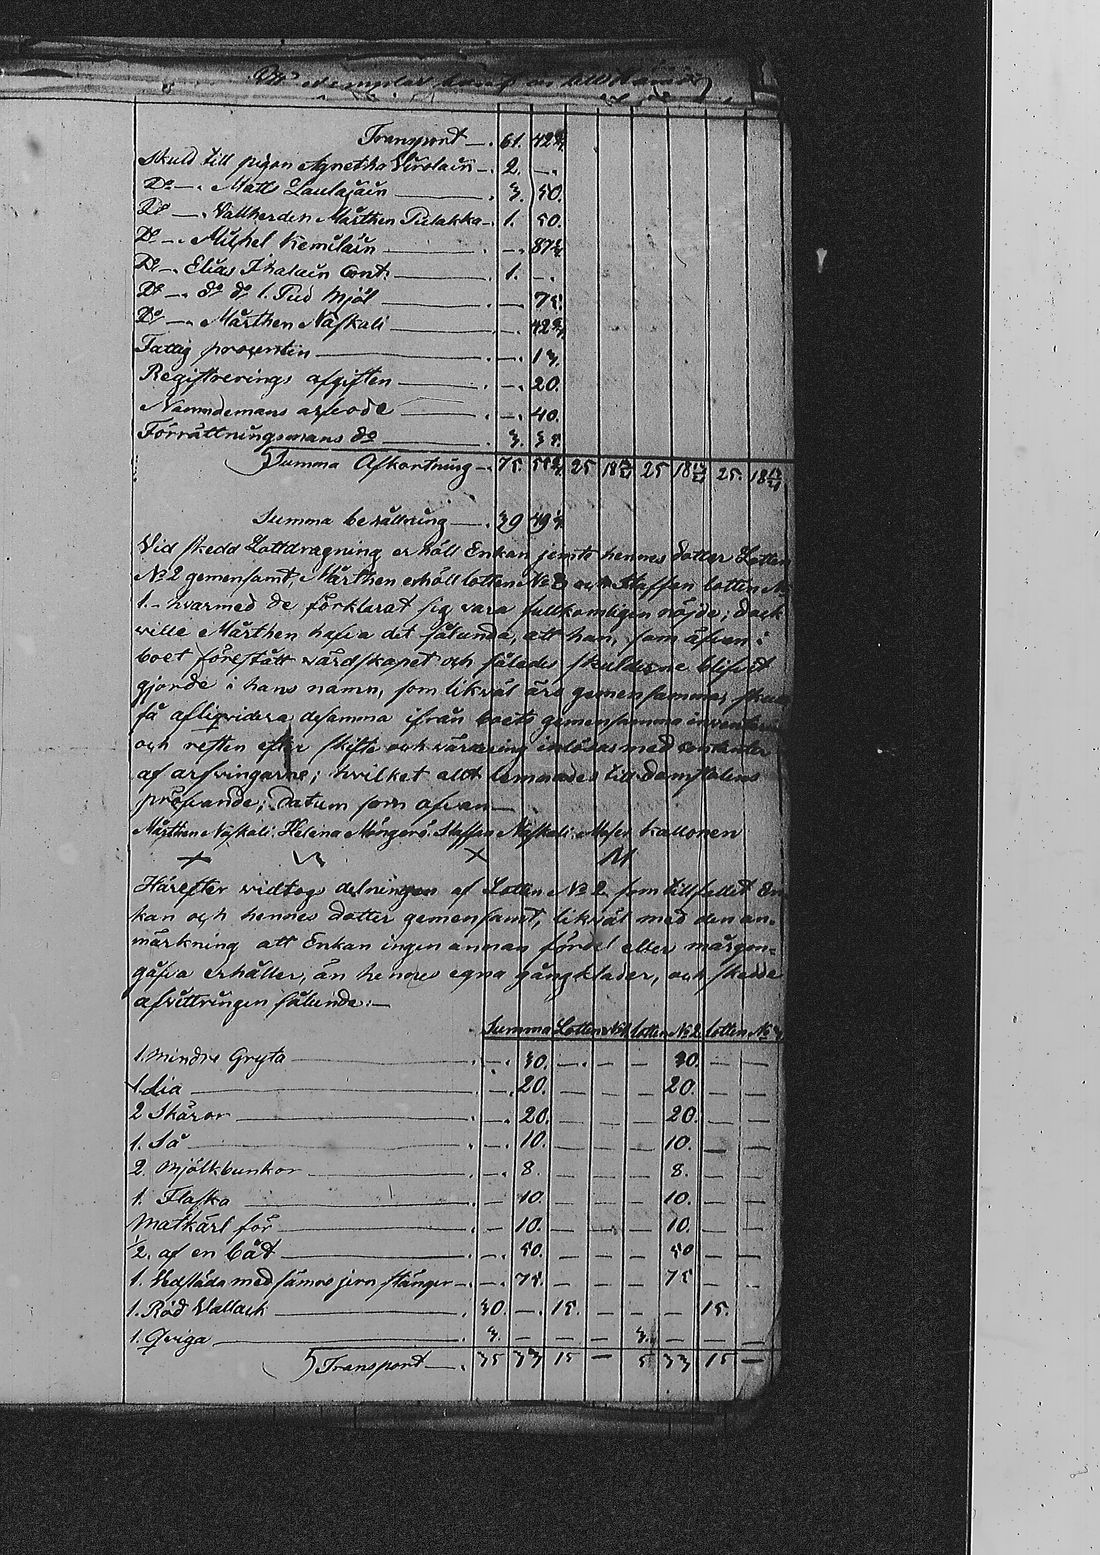 Transport — 61. 42 6/7
Skuld till pigan Agnetha Virolain — 2. —
Do — Matts Laulajain — 3. 50.
Do — Vallherden Mårthen Pulakka — 1. 50.
Do — Michel Kemiläin — — 87 1/2
Do — Elias Ihalain Cont. — 1. —
Do — do do 1. Pud Mjöl — — 75.
Do — Mårthen Naskali — — 42 6/7
Fattig procenten — — 13.
Registrerings afgiften — — 20.
Nämndemans arfvode — — 40.
Förrättningsmans do — 3. 38.
Summa Afkortning — 75. 25 18 25 18 25. 18
Summa behållning — 39 49
Vid skedd Lottdragning erhöll Enkan jemte hennes dotter Lotten
No 2 gemensamt, Mårthen erhöll lotten No 3 och Staffan lotten No
1. — hvarmed de förklarat sig vara fullkomligen nöjde; dock
ville Mårthen hafva det sålunda, att han, som äfven i
boet förestått värdskapet och således skulderne blifvit
gjorde i hans namn, som likväl äro gemensamma, skall
få afliqvidera desamma ifrån boets gemensamma inventarie
och resten efter skifte och värdering inlösas med contanter
af arfvingarne; hvilket allt lemnades till Domstolens
pröfvande; Datum som ofvan —
Mårthen Naskali. Helena Möngerö. Staffan Naskali. Moses Kallonen
Härefter vidtogs delningen af Lotten No 2 som tillfallet En
kan och hennes dotter gemensamt, likväl med den an-
märkning att Enkan ingen annan fördel eller morgon-
gåfva erhåller, än hennes egna gångkläder, och skedde
afvittringen sålunda: —
Summa Lotten No 1 lotten No 2 lotten No 3
1. mindre Gryta — — 30. — — — 30. — —
1. Lia — — 20. — — — 20. — —
2 Skäror — — 20. — — — 20. — —
1. Så — — 10. — — — 10. — —
2. Mjölkbunkor — — 8 — — — 8. — —
1. Flaska — — 10. — — — 10. — —
Matkärl för — — 10. — — — 10. — —
1/2. af en båt — — 50. — — — 50 — —
1. med jern stänger — — 75. — — — 75 — —
1. Röd Vallack — 30. — 15. — — — 15. —
1. Qviga — 3. — — — 3. — — —
Transport — 35 33 15 — 5 33 15 —